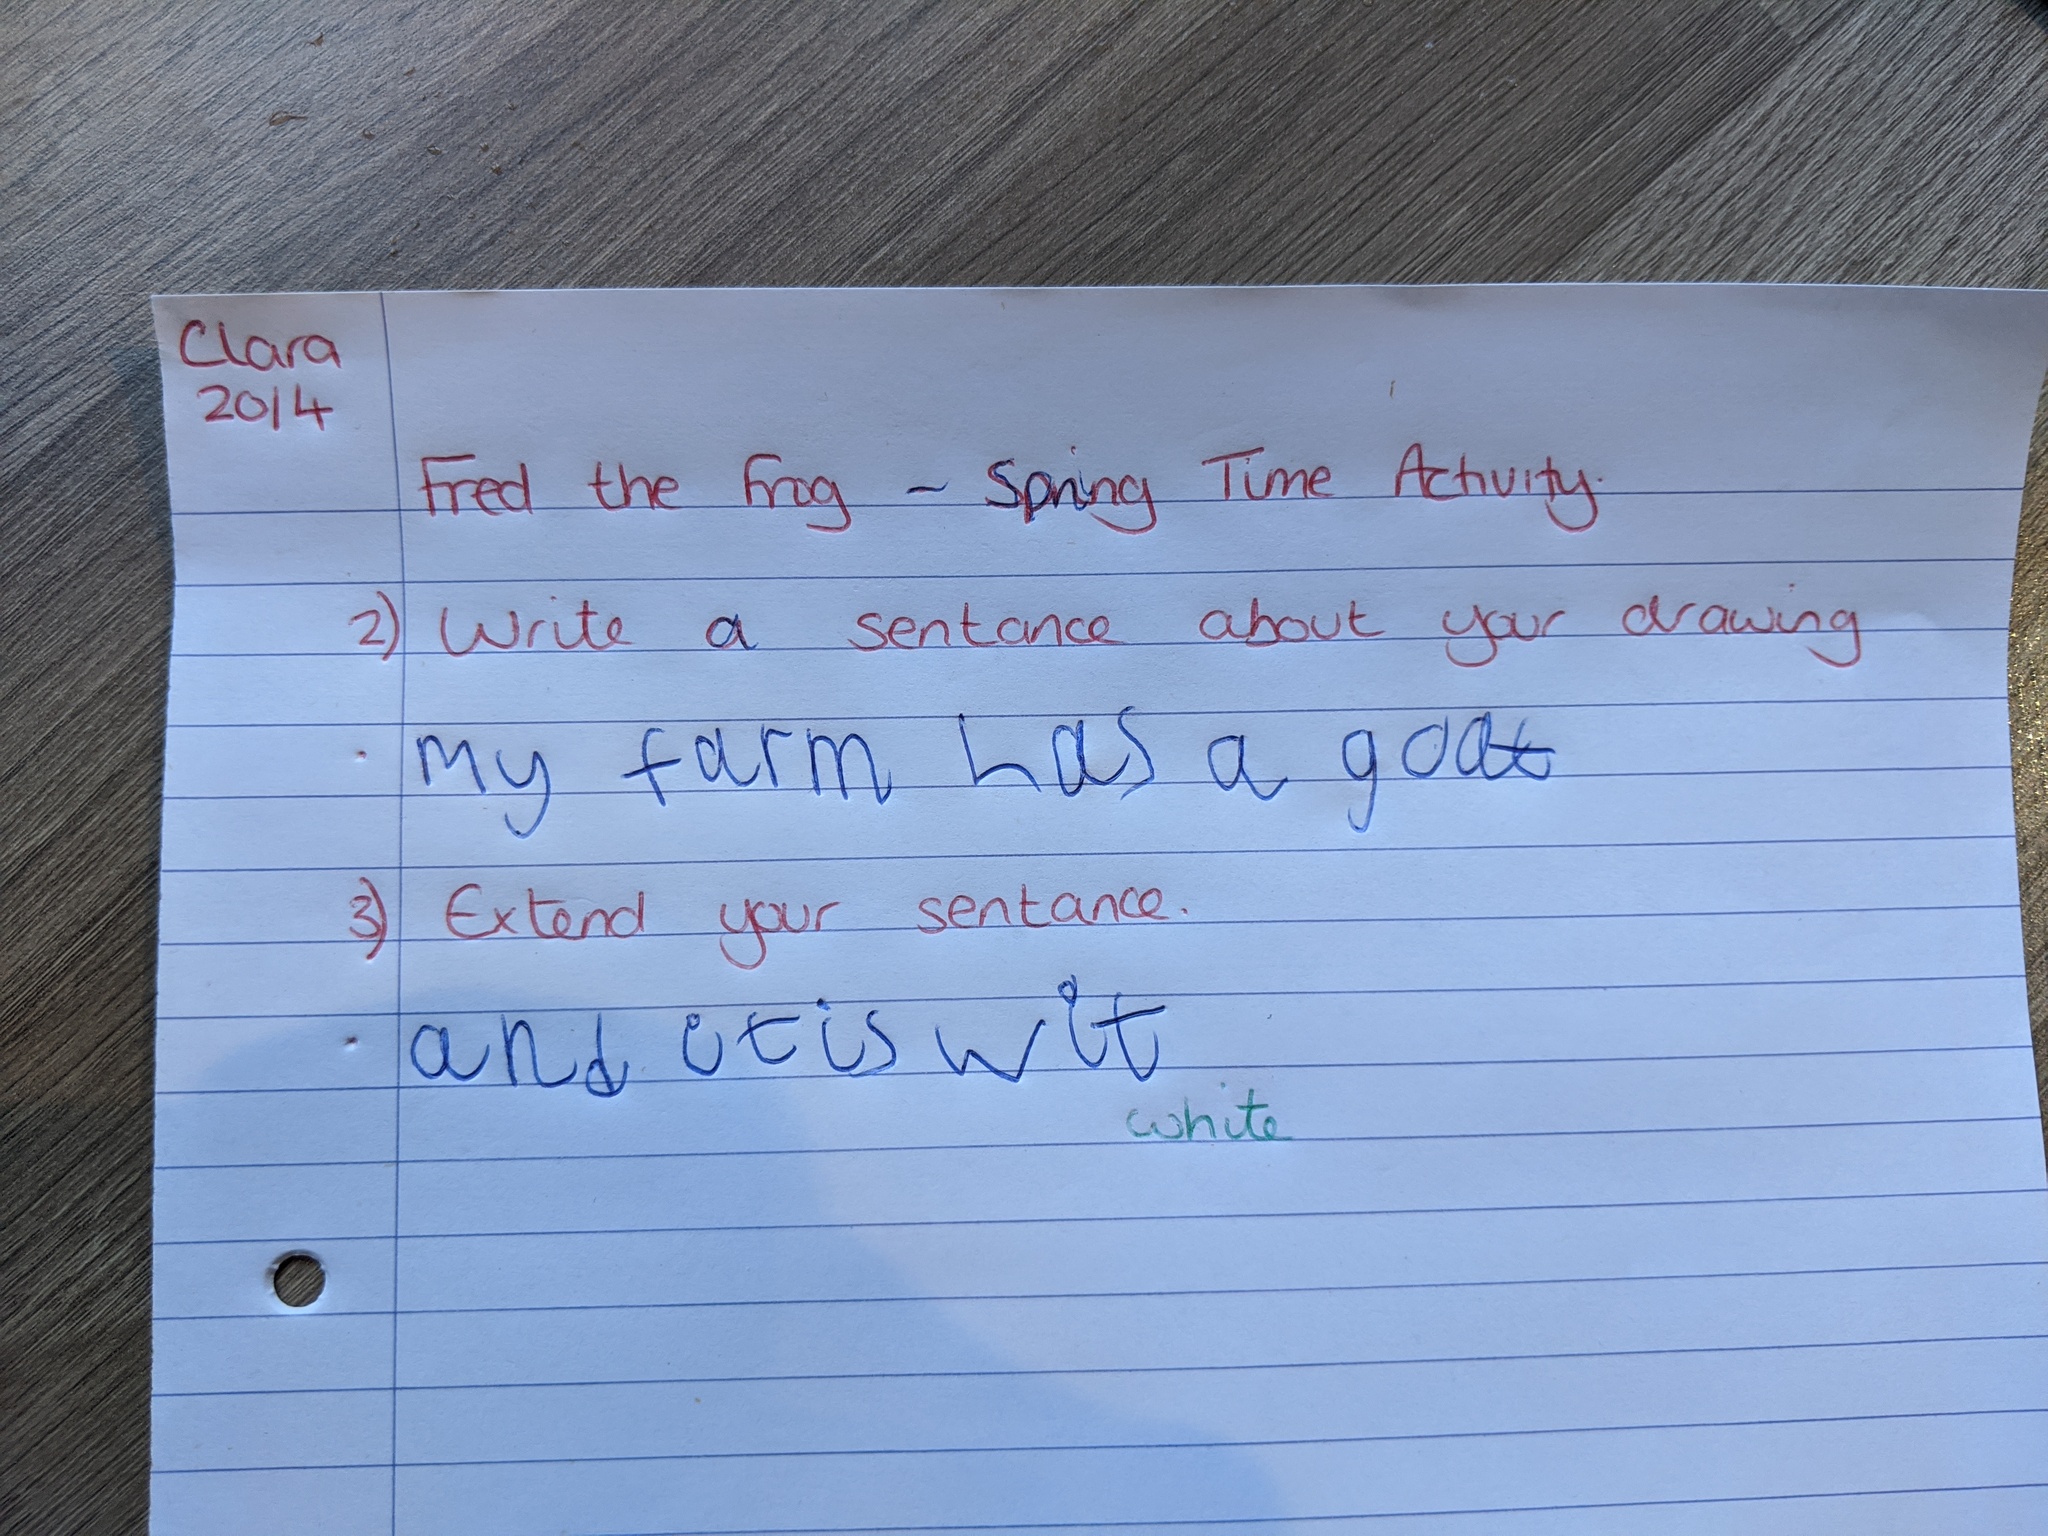 Clara
20/4
Fred the Frog - Spring Time Activity.
2) Write a sentance about your drawing
my farm has a goat
3) Extend your sentance.
and it is wit
white